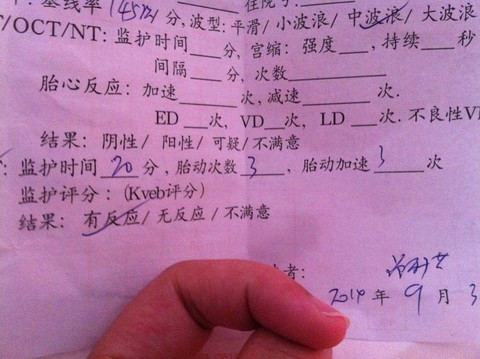 基线率 145次/分,波型:平滑/小波浪/中波浪/大波浪
/OCT/NT:监护时间___分,宫缩:强度___,持续___秒
间隔___分,次数______
胎心反应:加速______次,减速______次.
ED ___次, VD___次, LD ___次.不良性V
结果:阴性/ 阳性/ 可疑/不满意
:监护时间 20 分,胎动次数 3 ,胎动加速 3 次
监护评分:(Kveb评分)
结果: 有反应/ 无反应 / 不满意
者:
2014 年 9 月 3